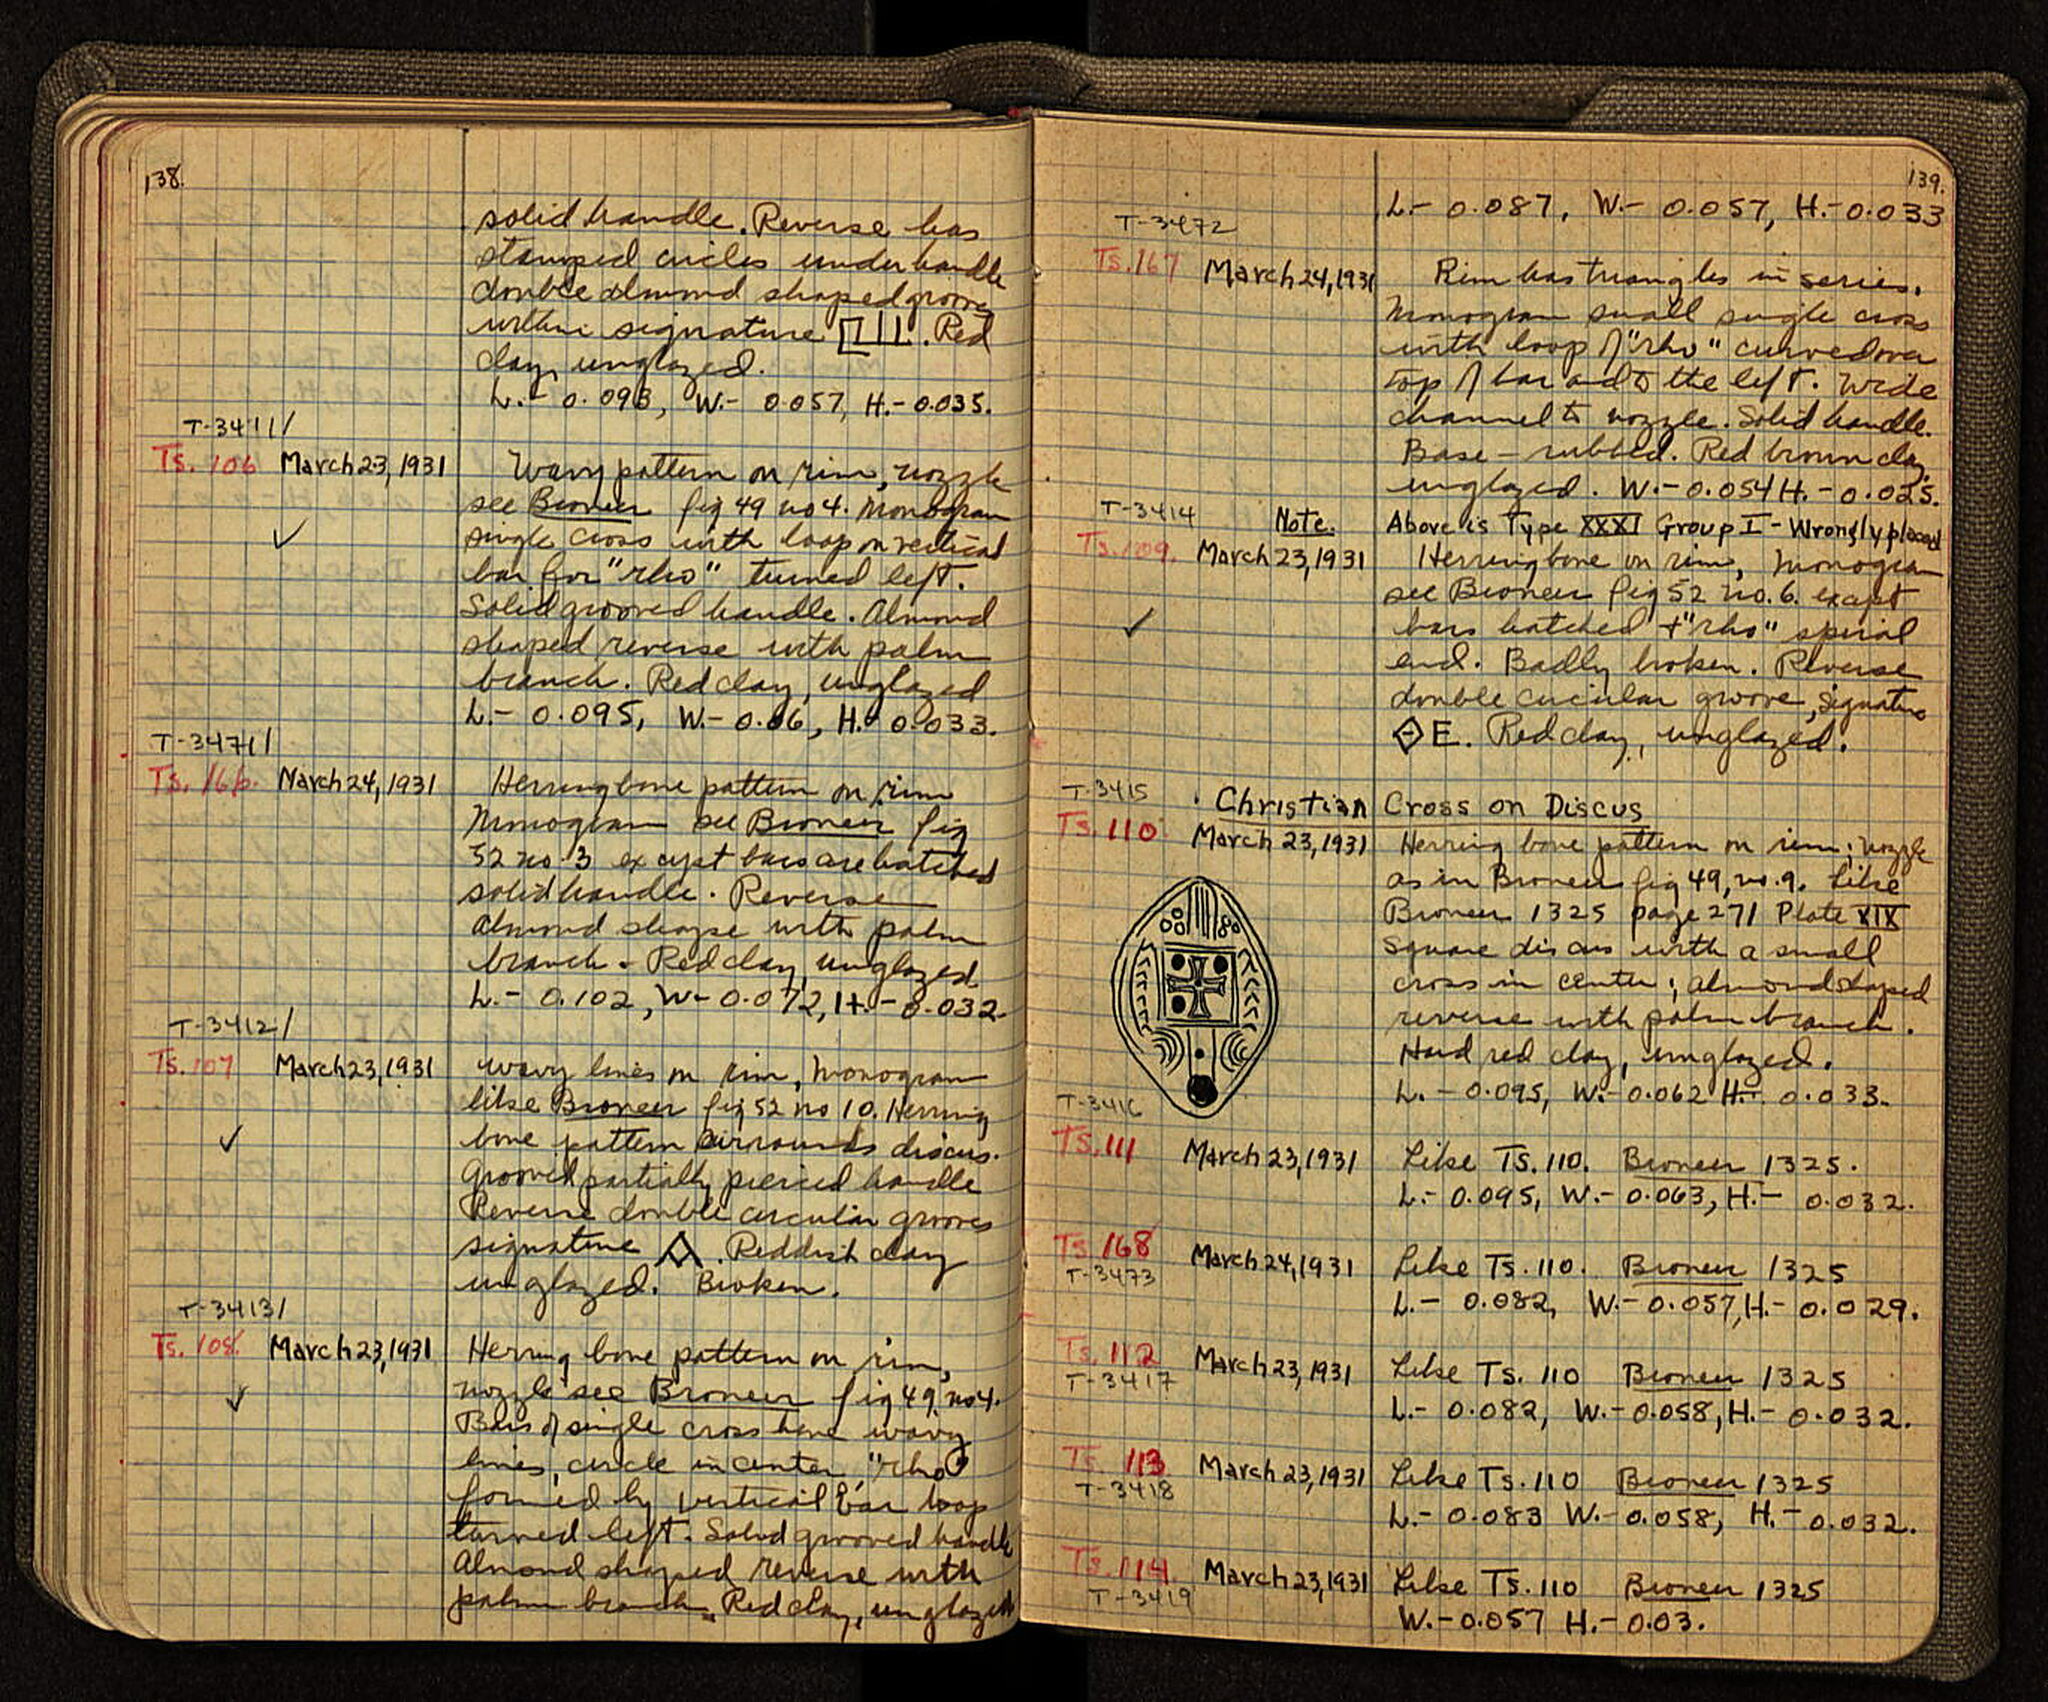 138.
solid handle. Reverse has
stamped circles under handle
double almond shaped groove
within signature . Red
clay, unglazed.
L.- 0.093, W.- 0.057, H.- 0.035.
T-3411/
Ts. 106 March 23, 1931 Wavy pattern on rim, nozzle
see Broneer fig 49 no 4. Monogram
single cross with loop on vertical
bar for "rho" turned left.
Solid grooved handle. Almond
shaped reverse with palm
branch. Red clay, unglazed
L.- 0.095, W.- 0.06, H.- 0.033.
T-3471/
Ts. 166. March 24, 1931 Herring bone pattern on rim
Monogram see Broneer fig
52 no. 3 except bars are hatched
solid handle. Reverse
almond shape with palm
branch. Red clay, unglazed
L.- 0.102, W- 0.072, H.- 0.032.
T-3412/
Ts. 107 March 23, 1931 wavy lines on rim, monogram
like Broneer fig 52 no 10. Herring
bone pattern surrounds discus.
Grooved partially pierced handle
Reverse double circular grooves
signature . Reddish clay
unglazed. Broken.
T-3413/
Ts. 108. March 23, 1931 Herring bone pattern on rim,
nozzle see Broneer fig 49, no 4.
Bars of single cross have wavy
lines, circle in center, "rho"
formed by vertical bar loop
turned left. Solid grooved handle
Almond shaped reverse with
palm branch. Red clay, unglazed
139.
L.- 0.087, W.- 0.057, H.- 0.033
T-3472
Ts. 167 March 24, 1931 Rim has triangles in series.
Monogram small single cross
with loop of "rho" curved over
top of bar and to the left. Wide
channel to nozzle. Solid handle.
Base - rubbed. Red brown clay,
unglazed. W.- 0.054 H.- 0.025.
T-3414
Note. Above is Type XXXI Group I - Wrongly placed
Ts. 109. March 23, 1931 Herring bone on rim, monogram
see Broneer fig 52 no. 6. except
bars hatched + "rho" spiral
end. Badly broken. Reverse
double circular groove, signature
E. Red clay, unglazed.
T-3415
Christian Cross on Discus
Ts. 110. March 23, 1931 Herring bone pattern on rim; nozzle
as in Broneer fig 49, no. 9. Like
Broneer 1325 page 271 Plate XIX
Square discus with a small
cross in center; almond shaped
reverse with palm branch.
Hard red clay, unglazed.
L.- 0.095, W.- 0.062 H.- 0.033.
T-3416
Ts. 111 March 23, 1931 Like Ts. 110. Broneer 1325.
L.- 0.095, W.- 0.063, H.- 0.032.
Ts. 168 March 24, 1931 Like Ts. 110. Broneer 1325
T-3473 L.- 0.082, W.- 0.057, H.- 0.029.
Ts. 112 March 23, 1931 Like Ts. 110 Broneer 1325
T-3417 L.- 0.082, W.- 0.058, H.- 0.032.
Ts. 113 March 23, 1931 Like Ts. 110 Broneer 1325
T-3418 L.- 0.083 W.- 0.058, H.- 0.032.
Ts. 114. March 23, 1931 Like Ts. 110 Broneer 1325
T-3419 W.- 0.057 H.- 0.03.